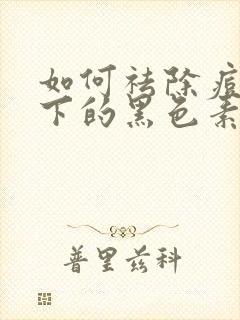 如何祛除痘
下的黑色素
普里兹科